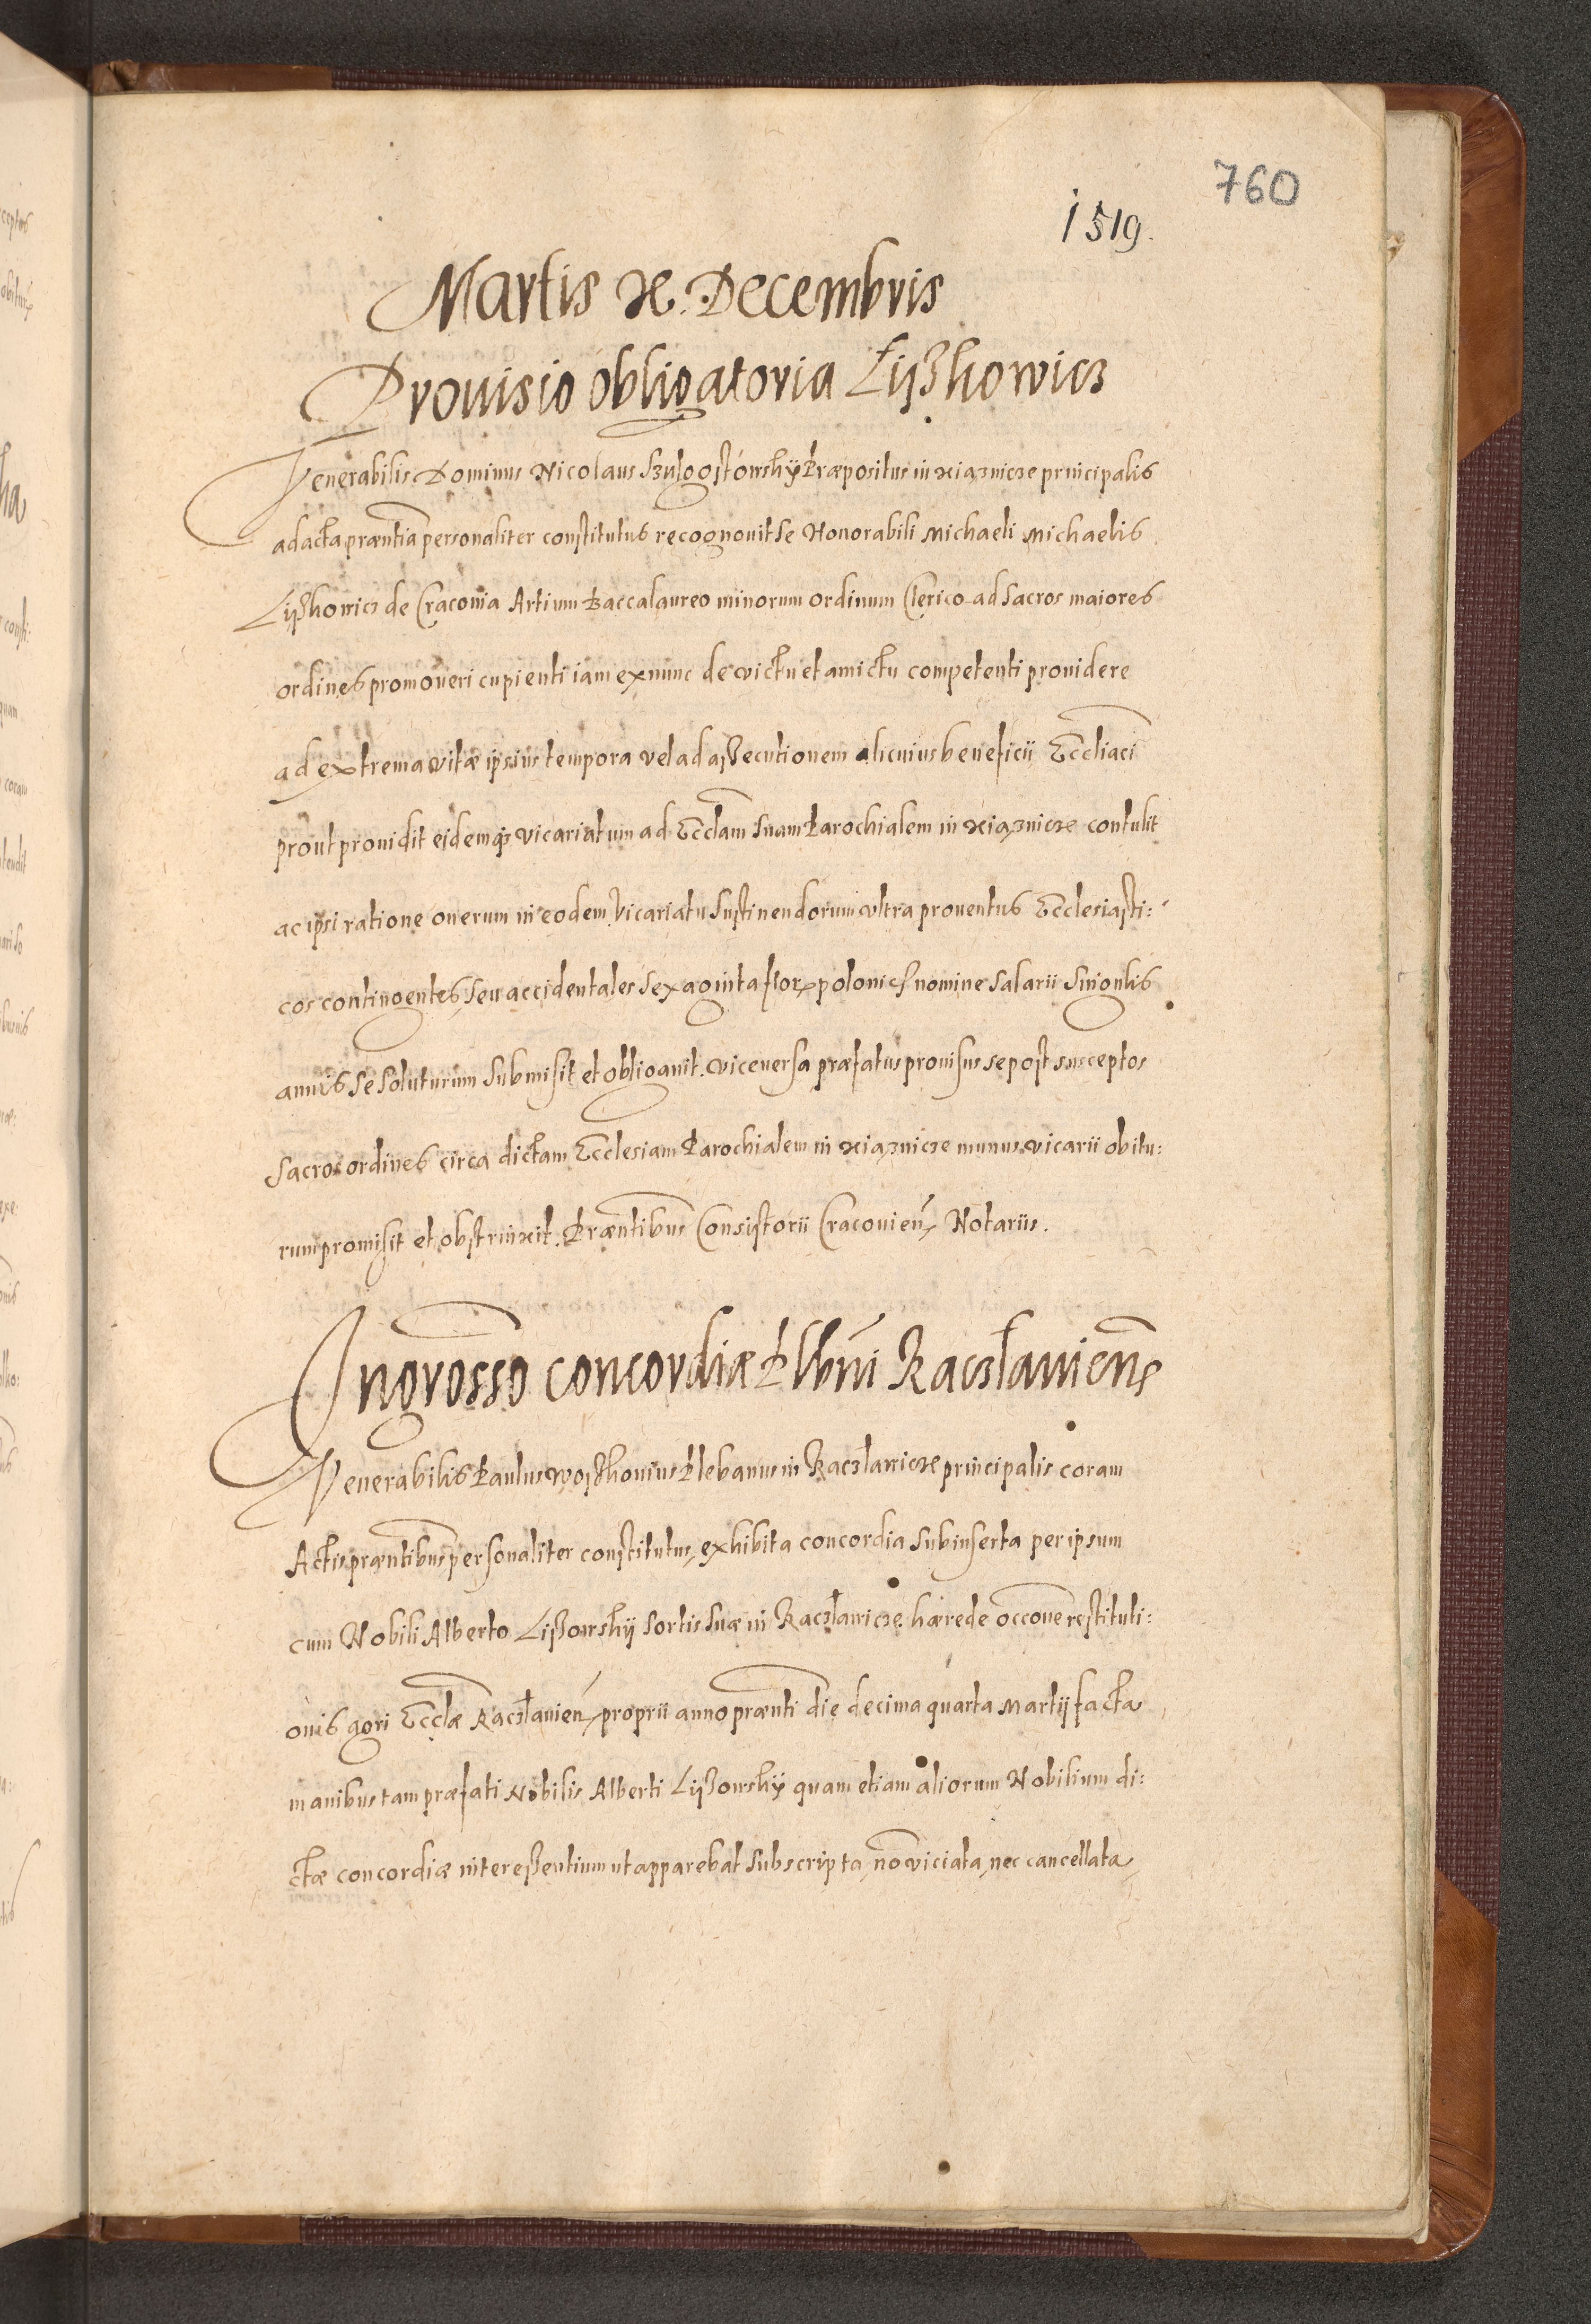 760
1519.
Martis 20. Decembris
Prouisio obligatoria Lijßkowicz
Venerabilis Dominus Nicolaus Szulgostowskÿ Præpositus in Xiąznicze principalis
ad acta præntia personaliter constitutus recognouit se Honorabili Michaeli Michaelis
Lijßkowicz de Cracouia Artium Baccalaureo minorum ordinum Clerico ad sacros maiores
ordines promoueri cupienti iam ex nunc de victu et amictu competenti prouidere
ad extrema vitæ ipsius tempora vel ad aßecutionem alicuius beneficii Eccliaci
prout prouidit eidemq3 vicariatum ad Ecclam suam Parochialem in Xiąznicze contulit
ac ipsi ratione onerum in eodem Vicariatu sustinendorum vltra prouentus Ecclesiasti:
cos contingentes, seu accidentales sexaginta flor. polonicꝭ nomine salarii singulis
annis se soluturum submisit et obligauit. viceuersa præfatus prouisus se post susceptos
sacros ordines circa dictam Ecclesiam Parochialem in Xiąznicze munus vicarii obitu:
rum promisit et obstrinxit. Præntibus Consistorii Cracouien. Notariis.
Ingrosso concordiæ Plbni Raczłauiens
Venerabilis Paulus Plebanus in Raczławicze principalis coram
Actis præntibus personaliter constitutus, exhibita concordia subinserta per ipsum
cum Nobili Alberto Lißowskij sortis suæ in Raczławicze hærede occone restituti:
onis agri Ecclæ Raczłauien, proprii anno prænti die decima quarta Martij facta
manibus tam præfati Nobilis Alberti Lijßowskÿ quam etiam aliorum Nobilium di:
ctæ concordiæ intereßentium ut apparebat subscripta, no viciata, nec cancellata,